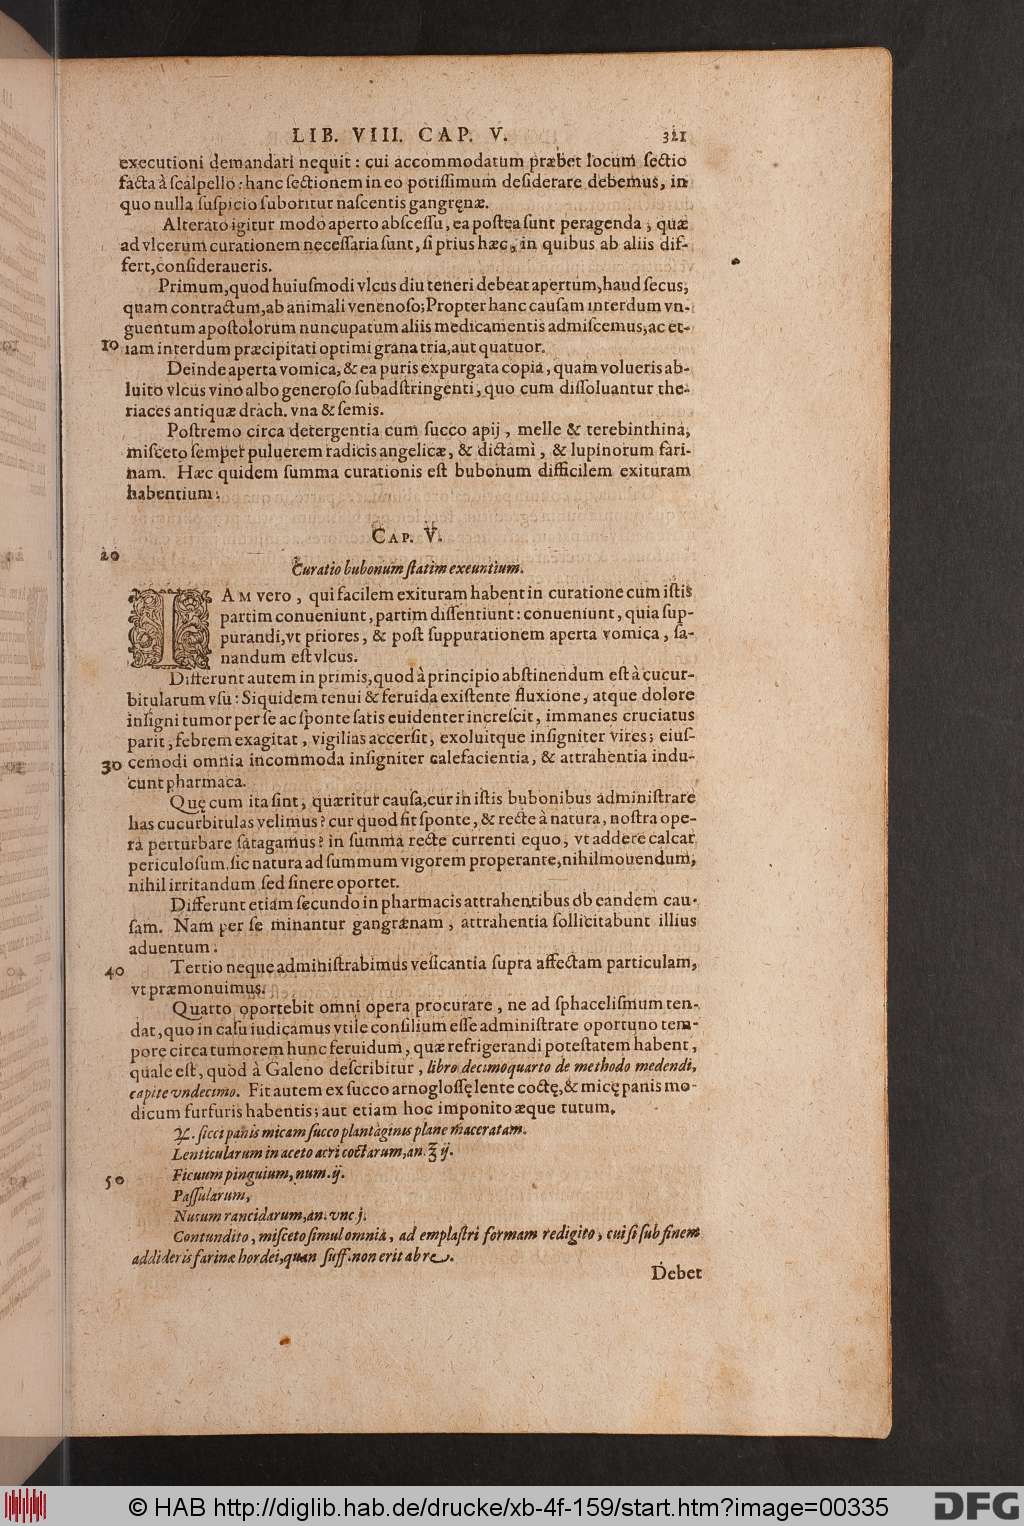 LIB. VIII. CAP. V. 321
executioni demandari nequit : cui accommodatum præbet locum sectio
facta à scalpello : hanc sectionem in eo potissimum desiderare debemus, in
quo nulla suspicio suboritur nascentis gangręnæ.
Alterato igitur modo aperto abscessu, ea postea sunt peragenda, quæ
ad vlcerum curationem necessaria sunt, si prius hæc, in quibus ab aliis dif-
fert, consideraueris.
Primum, quod huiusmodi vlcus diu teneri debeat apertum, haud secus,
quam contractum, ab animali venenoso; Propter hanc causam interdum vn-
guentum apostolorum nuncupatum aliis medicamentis admiscemus, ac et-
10 iam interdum præcipitati optimi grana tria, aut quatuor.
Deinde aperta vomica, & ea puris expurgata copia, quam volueris ab-
luito vlcus vino albo generoso subadstringenti, quo cum dissoluantur the-
riaces antiquæ drach. vna & semis.
Postremo circa detergentia cum succo apij, melle & terebinthina,
misceto semper puluerem radicis angelicæ, & dictami, & lupinorum fari-
nam. Hæc quidem summa curationis est bubonum difficilem exituram
habentium.
CAP. V.
20
Curatio bubonum statim exeuntium.
IAM vero, qui facilem exituram habent in curatione cum istis
partim conueniunt, partim dissentiunt : conueniunt, quia sup-
purandi, vt priores, & post suppurationem aperta vomica, sa-
nandum est vlcus.
Differunt autem in primis, quod à principio abstinendum est à cucur-
bitularum vsu : Siquidem tenui & feruida existente fluxione, atque dolore
insigni tumor per se ac sponte satis euidenter increscit, immanes cruciatus
parit, febrem exagitat, vigilias accersit, exoluitque insigniter vires; eius-
30 cemodi omnia incommoda insigniter calefacientia, & attrahentia indu-
cunt pharmaca.
Quę cum ita sint, quæritur causa, cur in istis bubonibus administrare
has cucurbitulas velimus? cur quod fit sponte, & recte à natura, nostra ope-
ra perturbare satagamus? in summa recte currenti equo, vt addere calcar
periculosum, sic natura ad summum vigorem properante, nihil mouendum,
nihil irritandum sed sinere oportet.
Differunt etiam secundo in pharmacis attrahentibus ob eandem cau-
sam. Nam per se minantur gangrænam, attrahentia sollicitabunt illius
aduentum.
40 Tertio neque administrabimus vesicantia supra affectam particulam,
vt præmonuimus.
Quarto oportebit omni opera procurare, ne ad sphacelismum ten-
dat, quo in casu iudicamus vtile consilium esse administrare oportuno tem-
pore circa tumorem hunc feruidum, quæ refrigerandi potestatem habent,
quale est, quod à Galeno describitur, libro decimoquarto de methodo medendi,
capite vndecimo. Fit autem ex succo arnoglossę lente coctę, & micę panis mo-
dicum furfuris habentis; aut etiam hoc imponito æque tutum.
℞. sicci panis micam succo plantaginis plane maceratam.
Lenticularum in aceto acri coctarum, an. ℥ ij.
50 Ficuum pinguium, num. ij.
Passularum,
Nucum rancidarum, an. vnc j.
Contundito, misceto simul omnia, ad emplastri formam redigito, cui si sub finem
addideris farinæ hordei, quan suff. non erit ab re.
Debet
© HAB http://diglib.hab.de/drucke/xb-4f-159/start.htm?image=00335
DFG